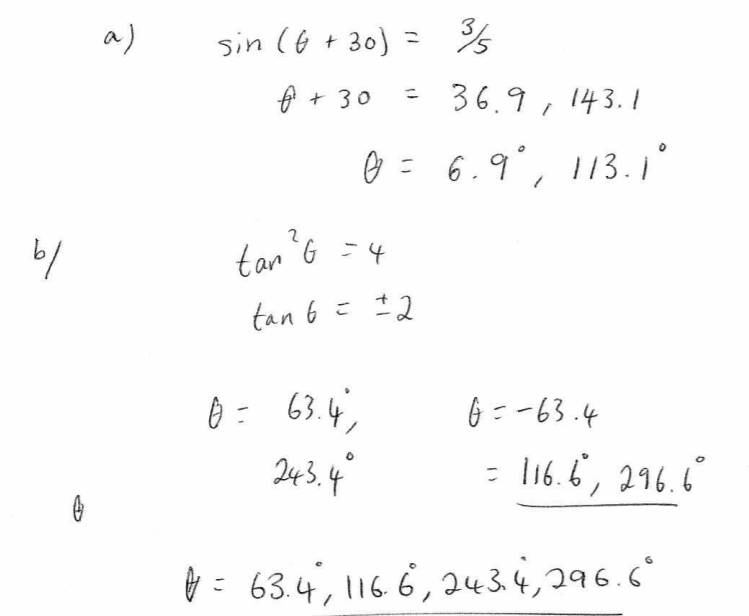 a) sin (θ + 30) = 3/5
θ + 30 = 36.9, 143.1
θ = 6.9°, 113.1°
b/ tan²θ = 4
tan θ = ±2
θ = 63.4°, θ = -63.4
243.4° = 116.6°, 296.6°
θ
θ = 63.4°, 116.6°, 243.4°, 296.6°